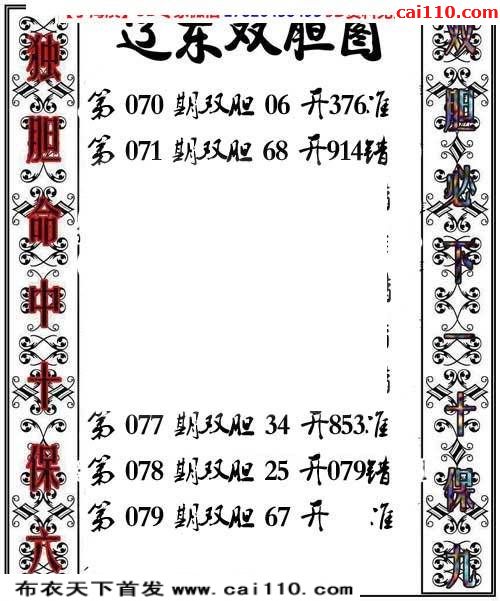 www.cai110.com
辽东双胆图
第 070 期双胆 06 开376准
第 071 期双胆 68 开914错
第 077 期双胆 34 开853准
第 078 期双胆 25 开079错
第 079 期双胆 67 开 准
独胆命中十保六
双胆必下一十保九
布衣天下首发 www.cai110.com